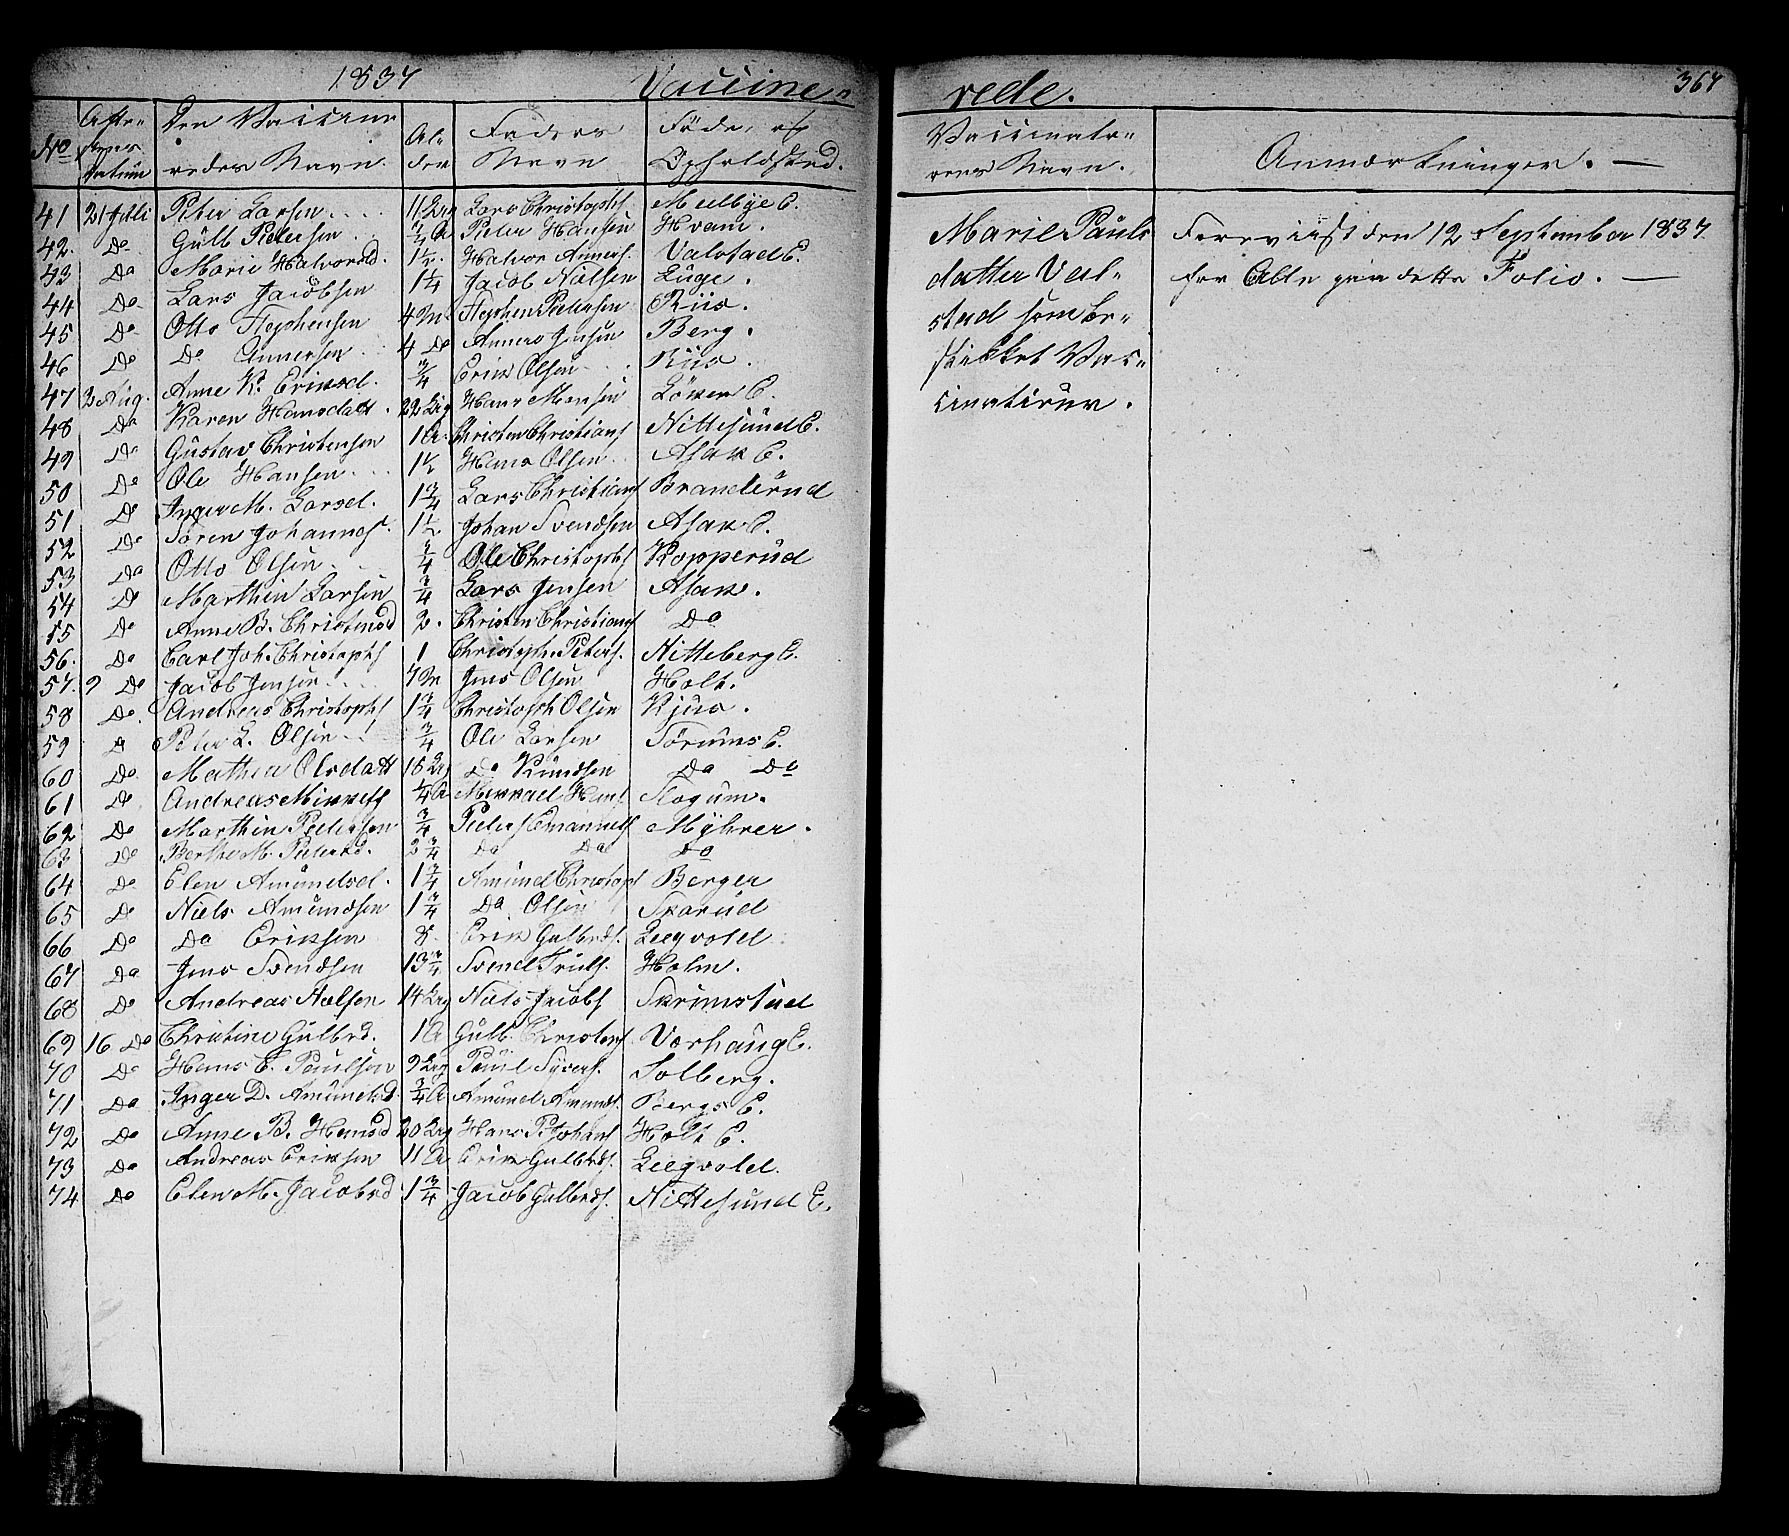 1837 Vaccine-
No Atte-stens Datum Den Vaccine-redes Navn. Al-der Faders Navn Føde, og Opholdsted.
41 21 Julii Peter Larsen 11 Ug Lars Christophs Melbye E.
42. Do Gulb Pedersen 3/4 A Peder Hansen Hvam.
43 Do Marie Halvorsd. 1 1/2. Halvor Anners. Valstad E.
44 Do Lars Jacobsen 1 1/4 Jacob Nielsen Luge.
45 Do Otto Stephensen 4 M Stephen Pedersen Riis.
46 Do Do Annersen 4 Do Anners Jensen Berg.
47 2 Aug. Anne K. Eriksd. 3/4 Erik Olsen Riis.
48 Do Karen Hansdatt. 22 Ug Hans Monsen Löken E.
49 Do Gustav Christensen 1 A Christen Christians Nittesund E.
50 Do Ole Hansen 1 1/2 Hans Olsen Asak E.
51 Do Inger M. Larsd. 1 3/4 Lars Christians Branderud
52 Do Sören Johannes. 1 1/2 Johan Svendsen Asak E.
53 Do Otto Olsen 3/4 Ole Christophs Kopperud
54 Do Marthin Larsen 3/4 Lars Jensen Asak.
55 Do Anne B. Christensd 2. Christen Christians Do
56. Do Carl Joh. Christophs 1 Christoph. Peters. Nitteberg E.
57. 9 Do Jacob Jensen 7 M Jens Olsen Holt.
58 Do Andreas Christophs 1 3/4 Christoph Olsen Kjus.
59 Do Peter L. Olsen 3/4 Ole Larsen Sörums E.
60 Do Mathea Olsdatt 16 Ug Do Knudsen Do Do
61 Do Andreas Mikkels 1/4 A Mikkael Hans Slogum.
62 Do Marthin Pedersen 3/4 Peder Emanuels Myhrer.
63 Do Berthe M. Pedersd. 2 3/4 Do Do Do
64 Do Elen Amundsd. 1 3/4 Amund Christoph Berger
65 Do Niels Amundsen 1 3/4 Do Olsen Skarud
66 Do Do Eriksen 8. Erik Gulbrds. Leegvold
67 Do Jens Svendsen 13 3/4 Svend Truls. Holm.
68 Do Andreas Nielsen 14 Ug Niels Jacobs Skrimstad
69 16 Do Christine Gulbrd. 1 A Gulb. Christens Værhaug E.
70 Do Hans E. Paulsen 9 Ug Paul Syvers. Solberg.
71 Do Inger D. Amundsd 3/4 A Amund Amunds. Bergs E.
72 Do Anne B. Hansd 20 Ug Hans P. Johans Holt E.
73 Do Andreas Eriksen 11 A Erik Gulbrds. Leegvold.
74 Do Elen M. Jacobsd 1 3/4 Jacob Gulbrds. Nittesund E.
rede. 367
Vaccinato-rens Navn. Anmærkninger. —
Marie Pauls Foreviist den 12 September 1837.
datter Val- for Alle paa dette Folio. —
stad som be-
skikket Vac-
cinatirer.